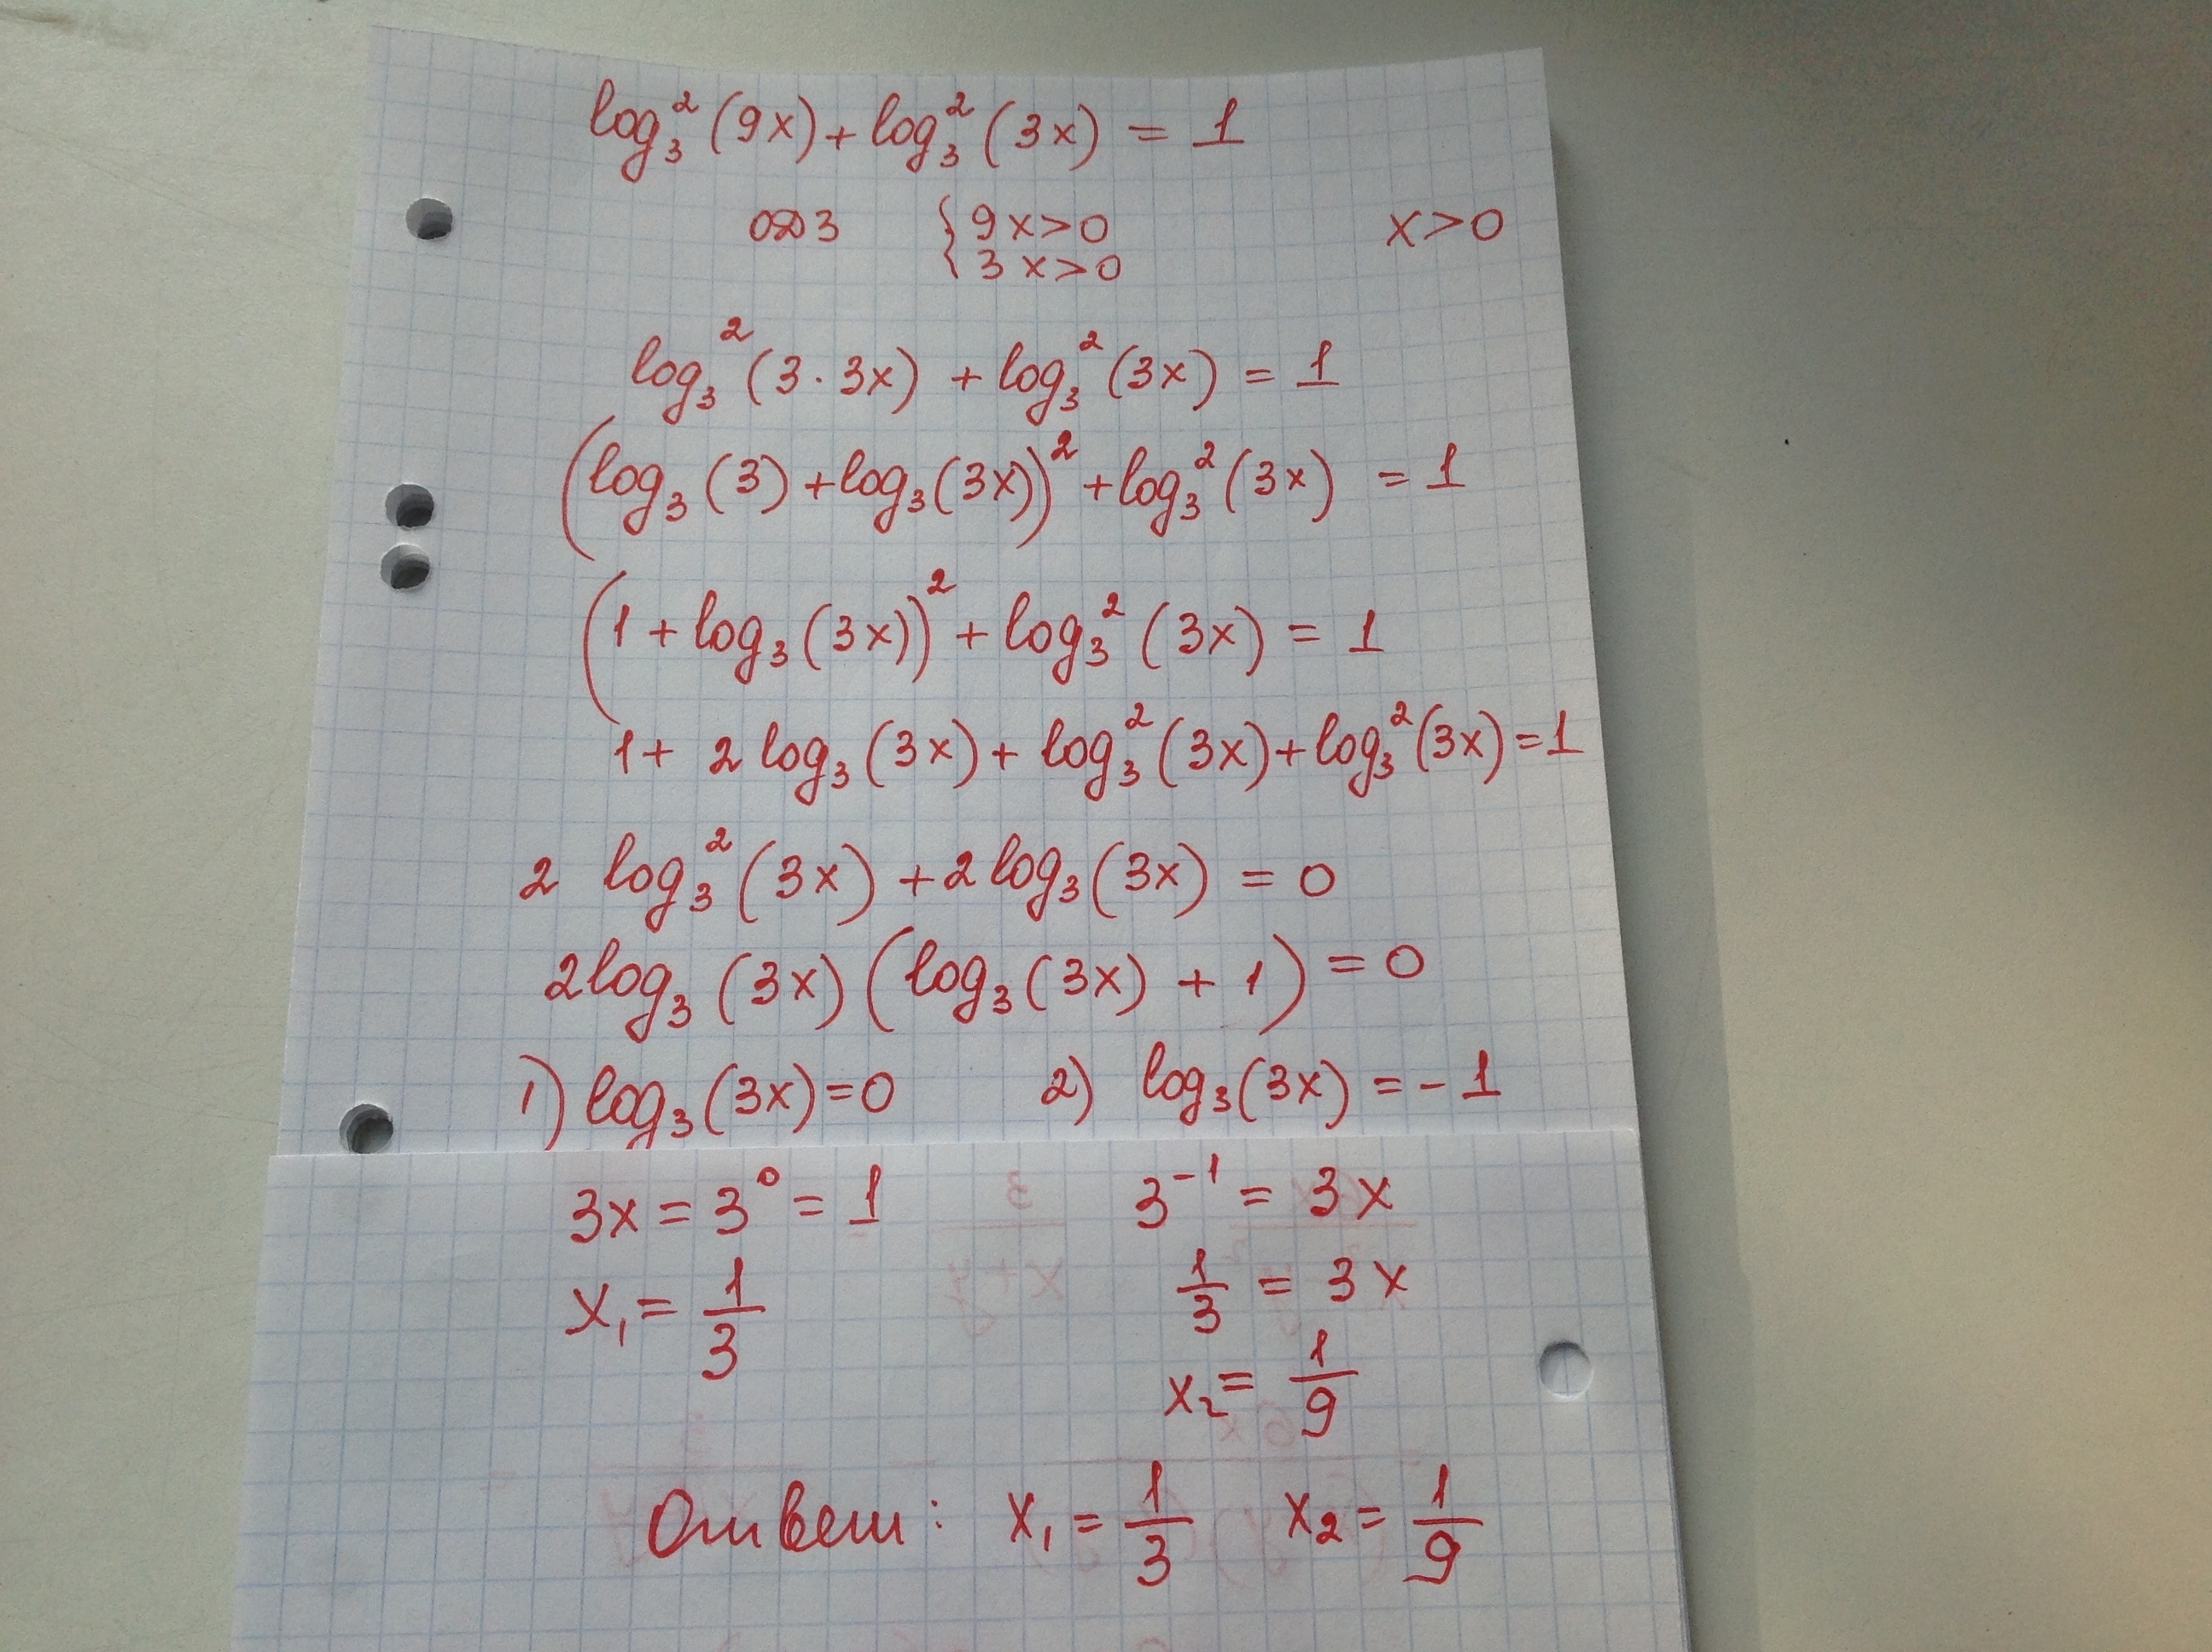 log₃²(9x) + log₃²(3x) = 1
ОДЗ { 9x>0 3x>0 x>0
log₃²(3·3x) + log₃²(3x) = 1
(log₃(3) + log₃(3x))² + log₃²(3x) = 1
(1 + log₃(3x))² + log₃²(3x) = 1
1 + 2 log₃(3x) + log₃²(3x) + log₃²(3x) = 1
2 log₃²(3x) + 2 log₃(3x) = 0
2 log₃(3x) (log₃(3x) + 1) = 0
1) log₃(3x) = 0 2) log₃(3x) = -1
3x = 3⁰ = 1 3⁻¹ = 3x
x₁ = 1/3 1/3 = 3x
x₂ = 1/9
Ответ: x₁ = 1/3 x₂ = 1/9